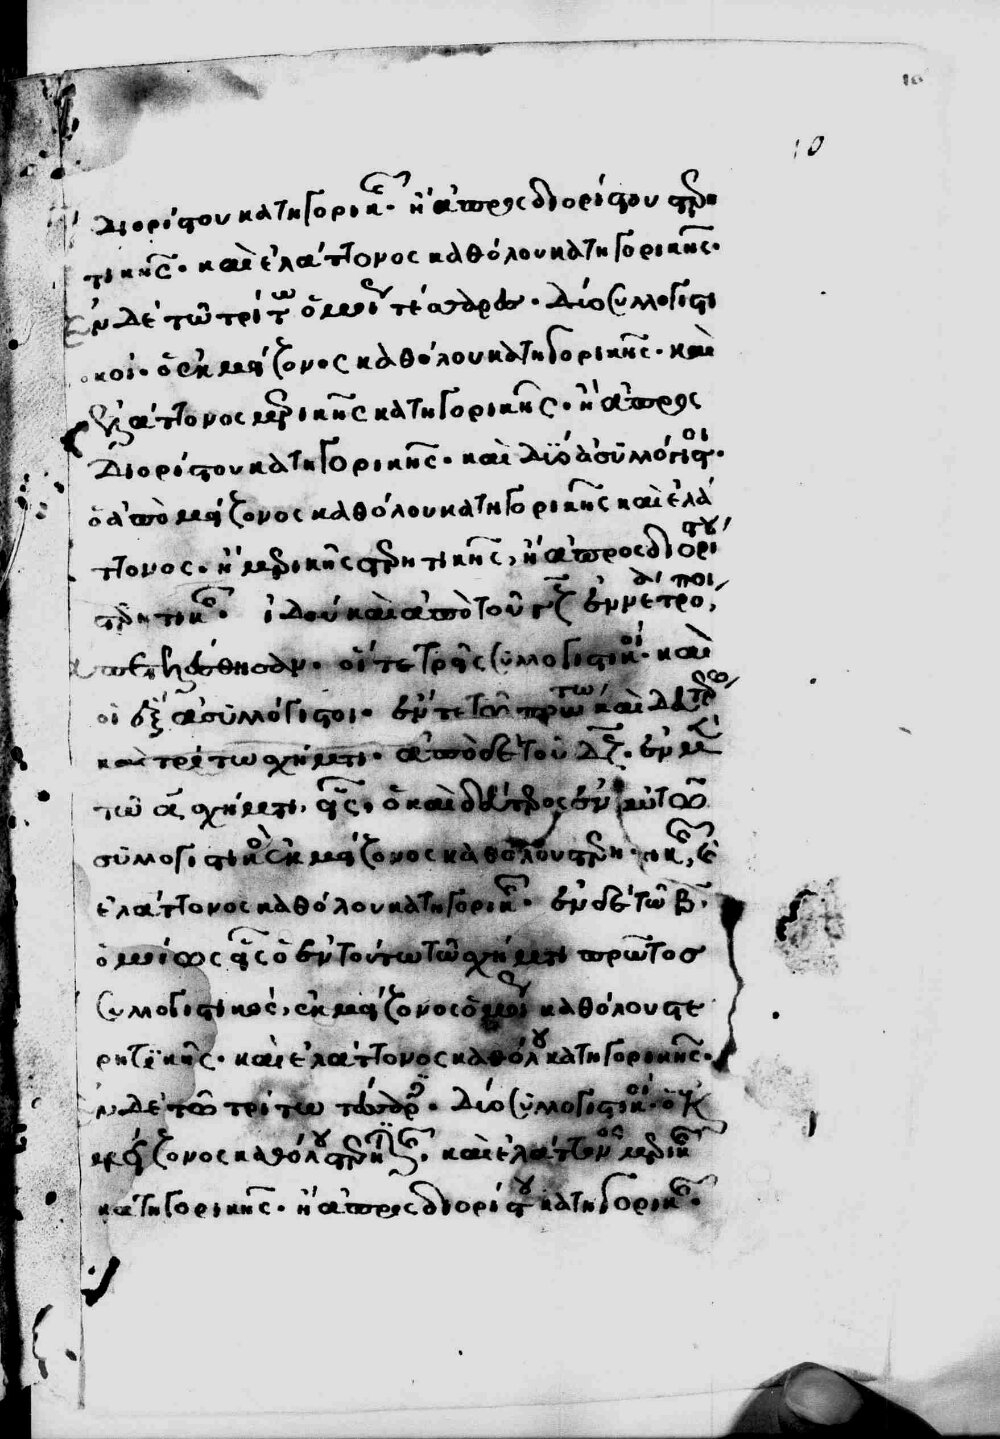 10
10
διορίστου κατηγορικῆς· ἢ ἀπροσδιορίστου στερη
τικῆς· καὶ ἐλάττονος καθόλου κατηγορικῆς·
ἐν δὲ τῶ τρίτω ὁμοῦ τέσσαρες· δύο συλλογιστι
κοί· ὁ ἐκ μείζονος καθόλου κατηγορικῆς· καὶ
ἐλάττονος μερικῆς κατηγορικῆς· ἢ ἀπροσ
διορίστου κατηγορικῆς· καὶ δύο ἀσυλλόγιστοι·
ὁ ἀπὸ μείζονος καθόλου κατηγορικῆς καὶ ἐλά
ττονος· ἢ μερικῆς στερητικῆς, ἢ ἀπροσδιορίστου
στερητικῆς· ἰδοὺ καὶ ἀπὸ τοῦ γ
οἵ τε τρεῖς συλλογιστικοί· καὶ
οἱ ἓξ ἀσυλλόγιστοι· ἔν τε τῶ πρώτω καὶ δευτέρω
καὶ τρίτω σχήματι· ἀπὸ δὲ τοῦ δ· ἐν μὲν
τῶ α σχήματι, εἷς, ὁ καὶ δεύτερος ἐν αὐτῶ
συλλογιστικὸς ἐκ μείζονος καθόλου στερητικῆς, καὶ
ἐλάττονος καθόλου κατηγορικῆς· ἐν δὲ τῶ β
ὁμοίως εἷς ὁ ἐν τούτω τῶ σχήματι πρῶτος
συλλογιστικός, ἐκ μείζονος ὁμοῦ καθόλου στε
ρητικῆς· καὶ ἐλάττονος καθόλου κατηγορικῆς·
ἐν δὲ τῶ τρίτω τέσσαρες· δύο συλλογιστικοί· ὁ ἐκ
μείζονος καθόλου στερητικῆς, καὶ ἐλάττονος μερικῆς
κατηγορικῆς· ἢ ἀπροσδιορίστου κατηγορικῆς·